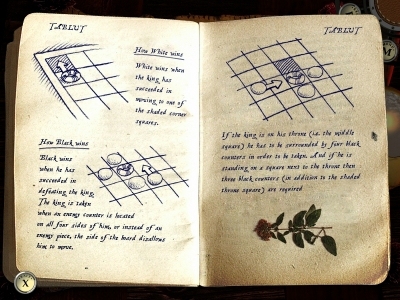 TABLUT
How White wins
White wins when
the king has
succeeded in
moving to one of
the shaded corner
squares.
How Black wins
Black wins
when he has
succeeded in
defeating the king.
The king is taken
when an enemy counter is located
on all four sides of him, or instead of an
enemy piece, the side of the board disallows
him to move.
X
TABLUT
If the king is on his throne (i.e. the middle
square) he has to be surrounded by four black
counters in order to be taken. And if he is
standing on a square next to the throne then
three black counters (in addition to the shaded
throne square) are required
M